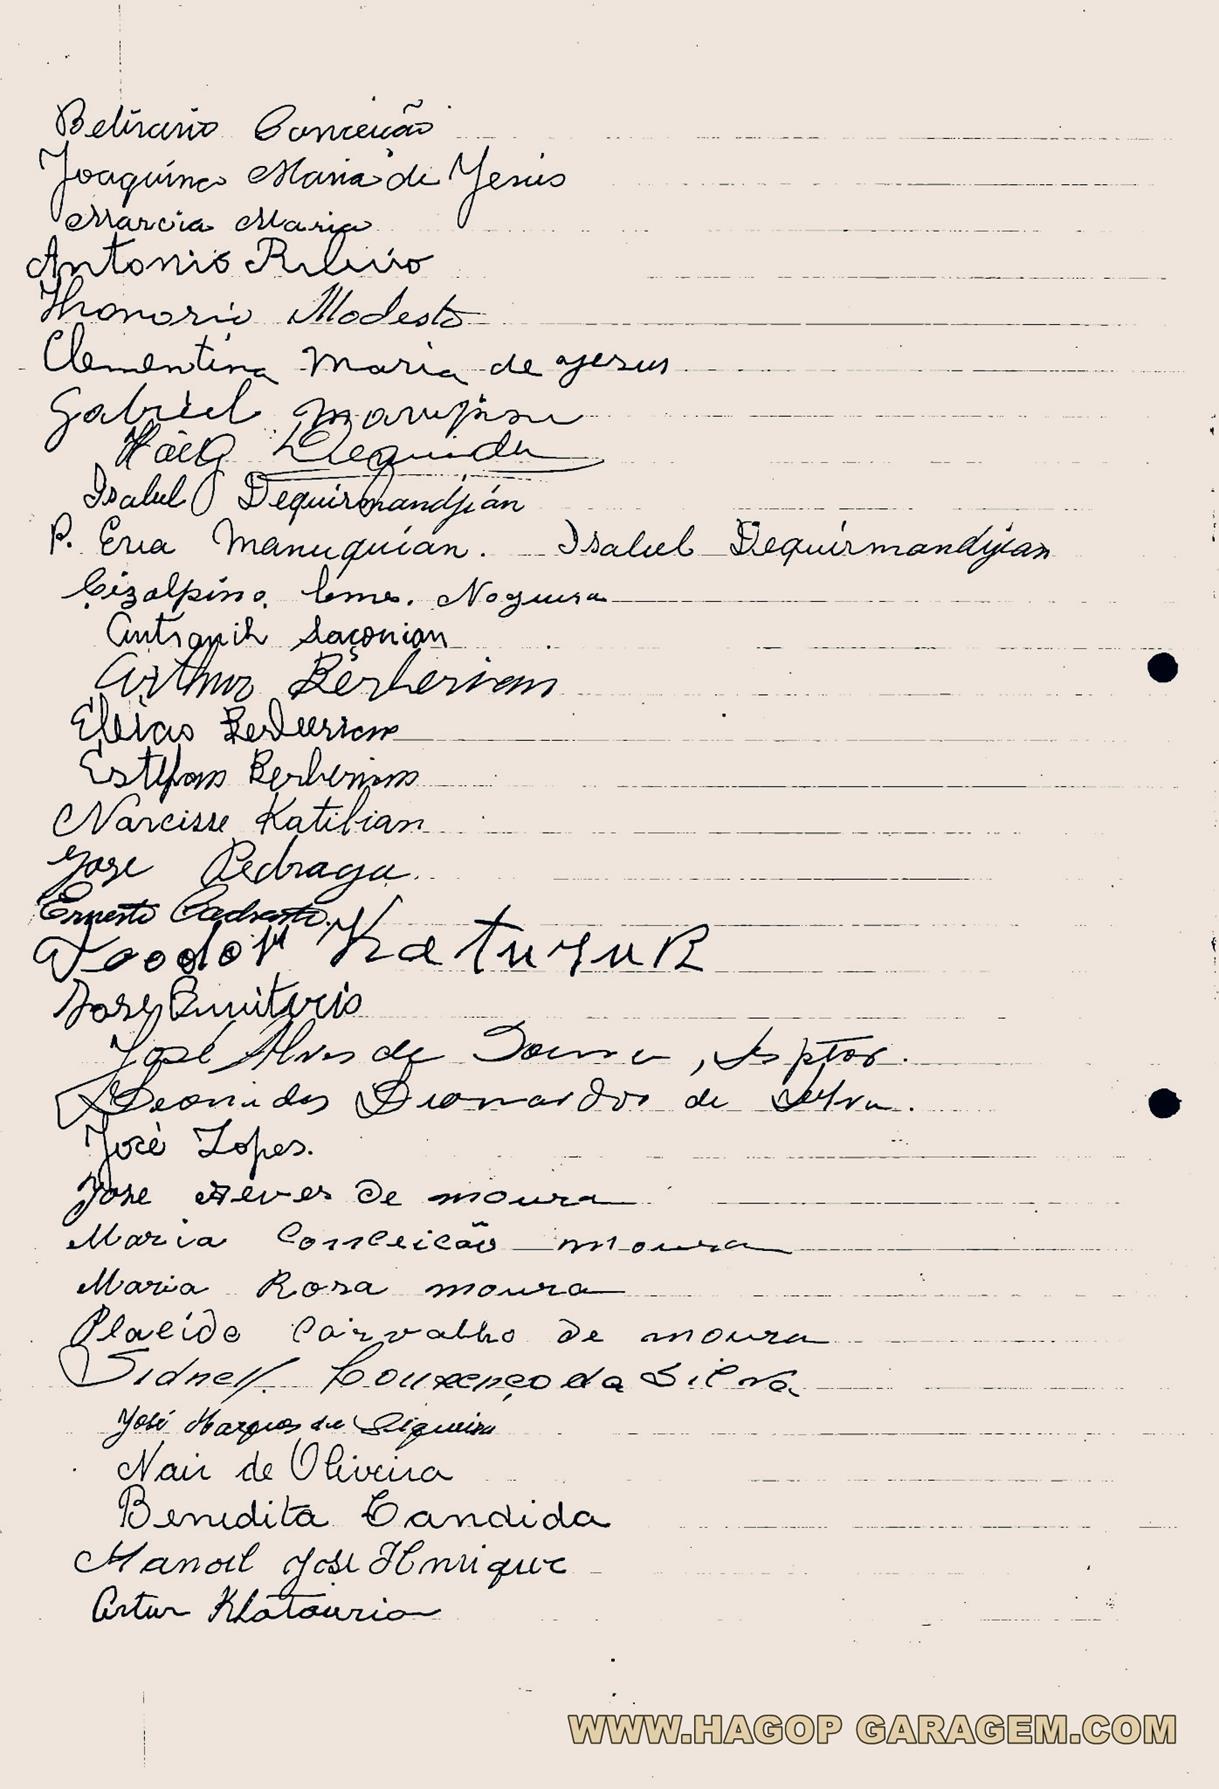 Belisario Conceição
Joaquina Maria de Jesus
Marcia Maria
Antonio Ribeiro
Honorio Modesto
Clementina Maria de yesus
Gabriel
Haig
Isabel Dequirmandjian
P. Eva Manuquian. Isabel Dequirmandjian
Cizalpino Nogueira
Antranik
Arthur Berberian
Elias Berberian
Estefan Berberian
Narcisse Katibian
Jose Pedraga
Ernesto
KaturuR
Jose
José Alves de
Leonidas de
José Lopes.
Jose de moura
Maria Conceicão moura
Maria Rosa moura
Placido Carvalho de moura
Sidney Lourenço da Silva
José Marques de Siqueira
Nair de Oliveira
Benedita Candida
Manoel José Henrique
Artur
WWW.HAGOP GARAGEM.COM